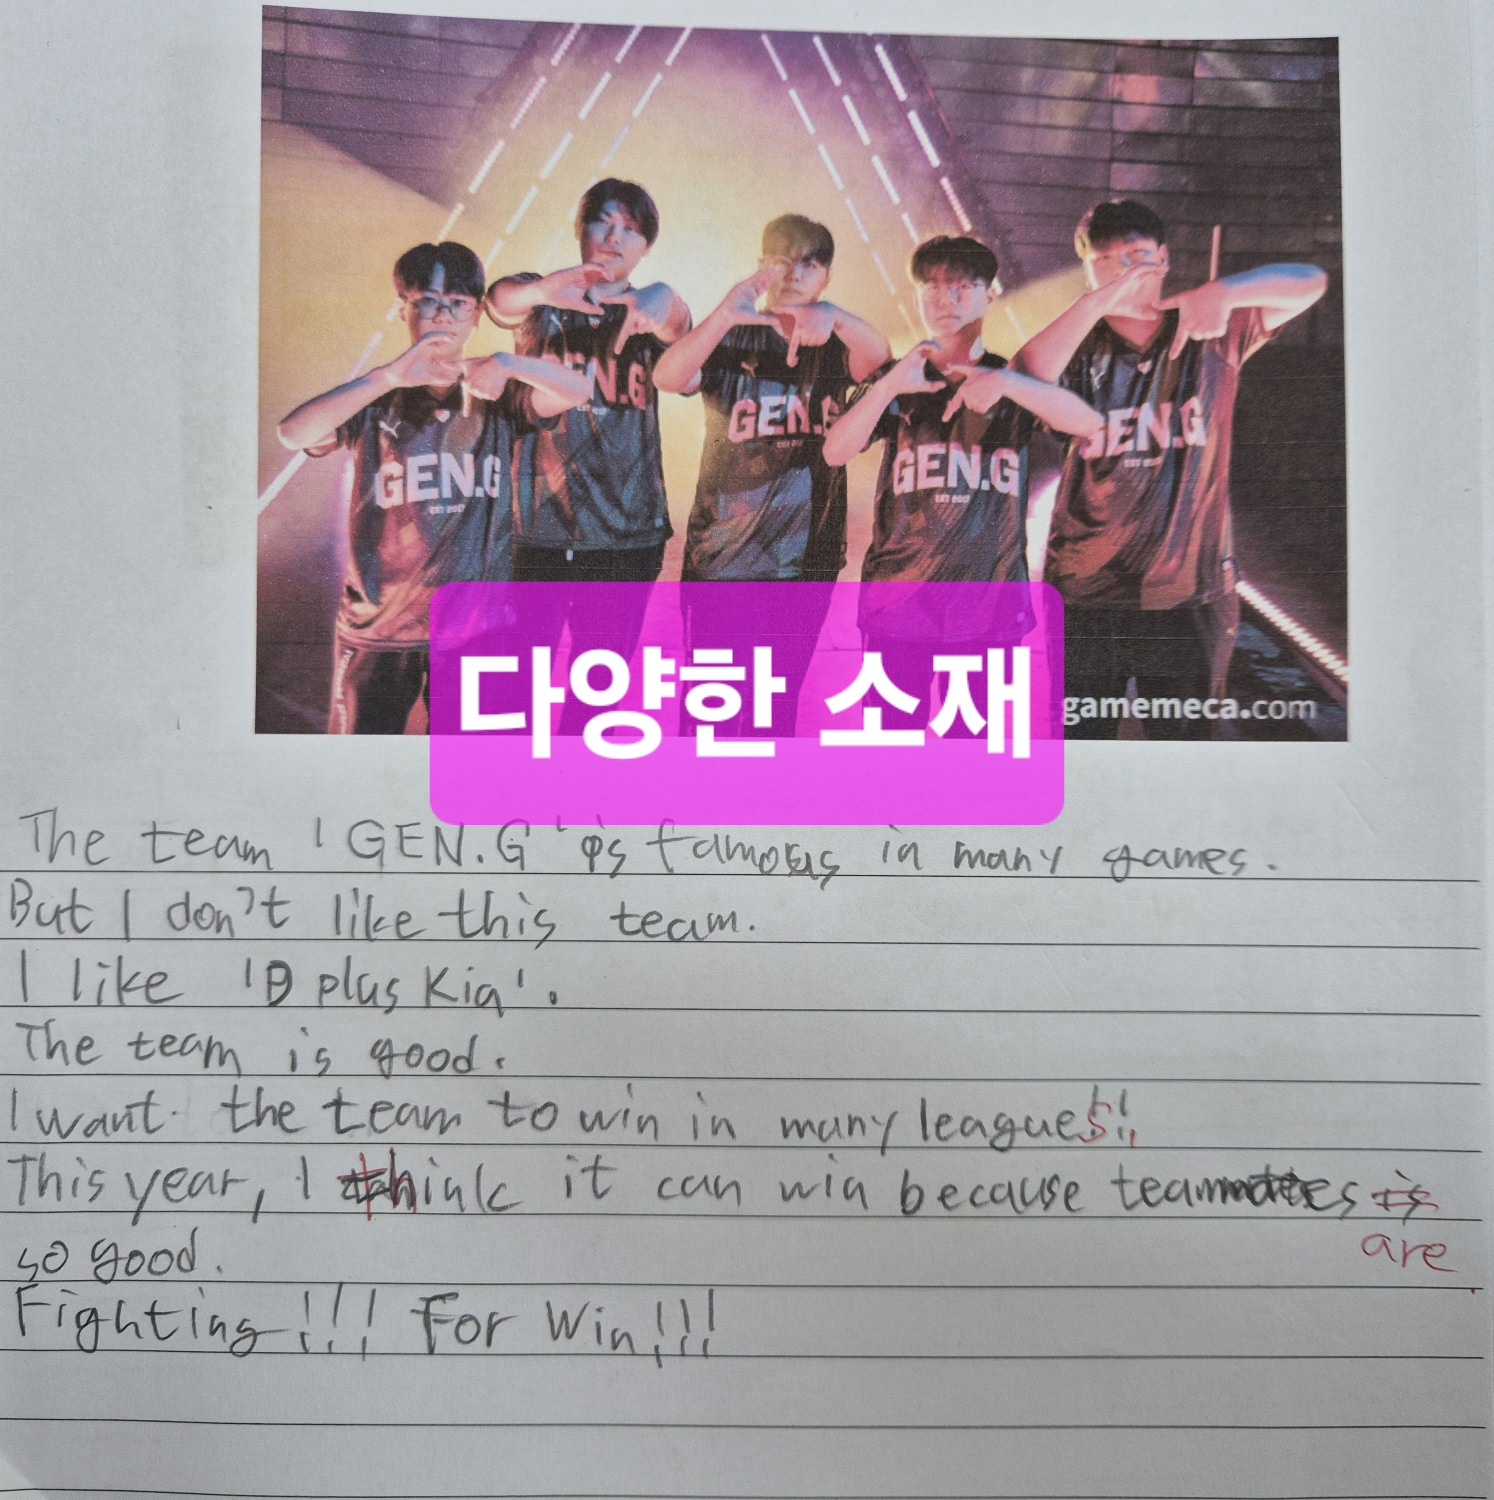 GEN.G
EST 2017
EN.G
EST 2017
GEN.G
EST 2017
GEN.G
EST 2017
GEN.G
EST 2017
gamemeca.com
다양한 소재
The team 'GEN.G' is famous in many games.
But I don't like this team.
I like 'D plus Kia'.
The team is good.
I want the team to win in many leagues!!
This year, I think it can win because teammates is
are
so good.
Fighting!!! For Win!!!